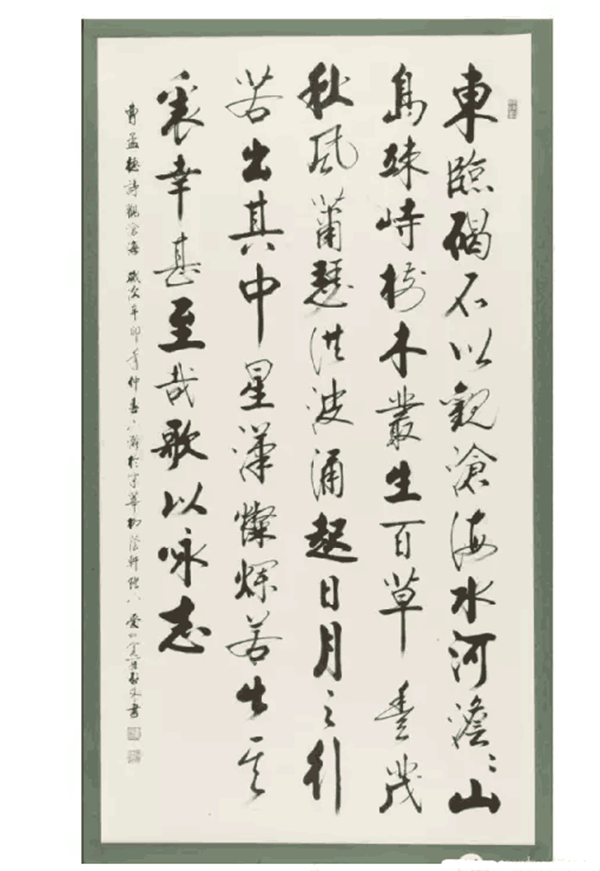 東臨碣石以觀滄海水河澹〻山
島竦峙樹木叢生百草豊茂
秋風蕭瑟洪波涌起日月之行
若出其中星漢燦爛若出其
裏幸甚至哉歌以咏志
曹孟德詩觀滄海 歲次辛卯年仲春於京華柳蔭軒書